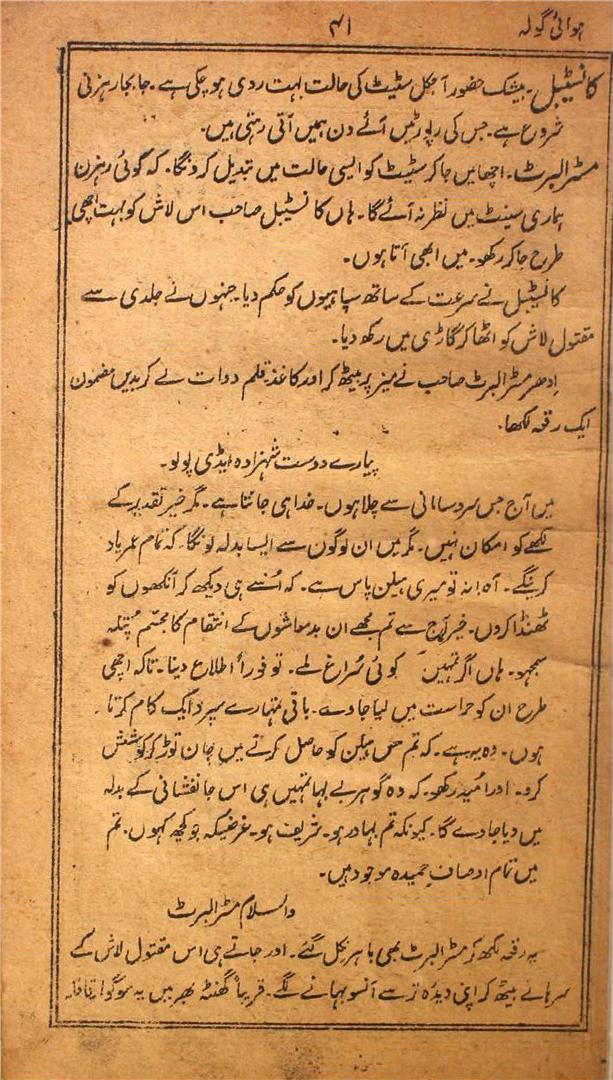 ہوائی گولہ ۴۱
کانسٹیبل۔ بیشک حضور آجکل سٹیٹ کی حالت بہت ردی ہو چکی ہے۔ جا بجا رہزنی
شروع ہے۔ جس کی رپورٹیں آئے دن ہمیں آتی رہتی ہیں۔
مسٹر البرٹ۔ اچھا میں جا کر سٹیٹ کو ایسی حالت میں تبدیل کر دونگا۔ کہ کوئی رہزن
ہماری سٹیٹ میں نظر نہ آئے گا۔ ہاں کانسٹیبل صاحب اس لاش کو بہت اچھی
طرح جا کر رکھو۔ میں ابھی آتا ہوں۔
کانسٹیبل نے سرعت کے ساتھ سپاہیوں کو حکم دیا۔ جنہوں نے جلدی سے
مقتول لاش کو اٹھا کر گاڑی میں رکھ دیا۔
اِدھر مسٹر البرٹ صاحب نے میز پر بیٹھ کر اور کاغذ قلم دوات لے کر بدیں مضمون
ایک رقعہ لکھا۔
پیارے دوست شہزادہ ایڈی پولو۔
میں آج جس سرد سامانی سے چلا ہوں۔ خدا ہی جانتا ہے۔ مگر خیر تقدیر کے
لکھے کو امکان نہیں۔ مگر میں ان لوگوں سے ایسا بدلہ لونگا۔ کہ تمام عمر یاد
کرینگے۔ آہ! نہ تو میری ہیلن پاس ہے۔ کہ اُسے ہی دیکھ کر آنکھوں کو
ٹھنڈا کروں۔ خیر آج سے تم مجھے ان بدمعاشوں کے انتقام کا مجسم پُتلہ
سمجھو۔ ہاں اگر تمہیں کوئی سُراغ ملے۔ تو فوراً اطلاع دینا۔ تاکہ اچھی
طرح ان کو حراست میں لیا جاوے۔ باقی تمہارے سپرد ایک کام کرتا
ہوں۔ وہ یہ ہے۔ کہ تم مس ہیلن کو حاصل کرنے میں جان توڑ کر کوشش
کرو۔ اور اُمید رکھو۔ کہ وہ گوہر بے بہا تمہیں ہی اس جانفشانی کے بدلہ
میں دیا جاوے گا۔ کیونکہ تم بہادر ہو۔ شریف ہو۔ غرضیکہ جو کچھ کہوں۔ تم
میں تمام اوصافِ حمیدہ موجود ہیں۔
والسلام مسٹر البرٹ
یہ رقعہ لکھ کر مسٹر البرٹ بھی باہر نکل گئے۔ اور جاتے ہی اس مقتول لاش کے
سرہانے بیٹھ کر اپنی دیدہ تر سے آنسو بہانے لگے۔ قریباً گھنٹہ بھر میں یہ سوگوار قافلہ